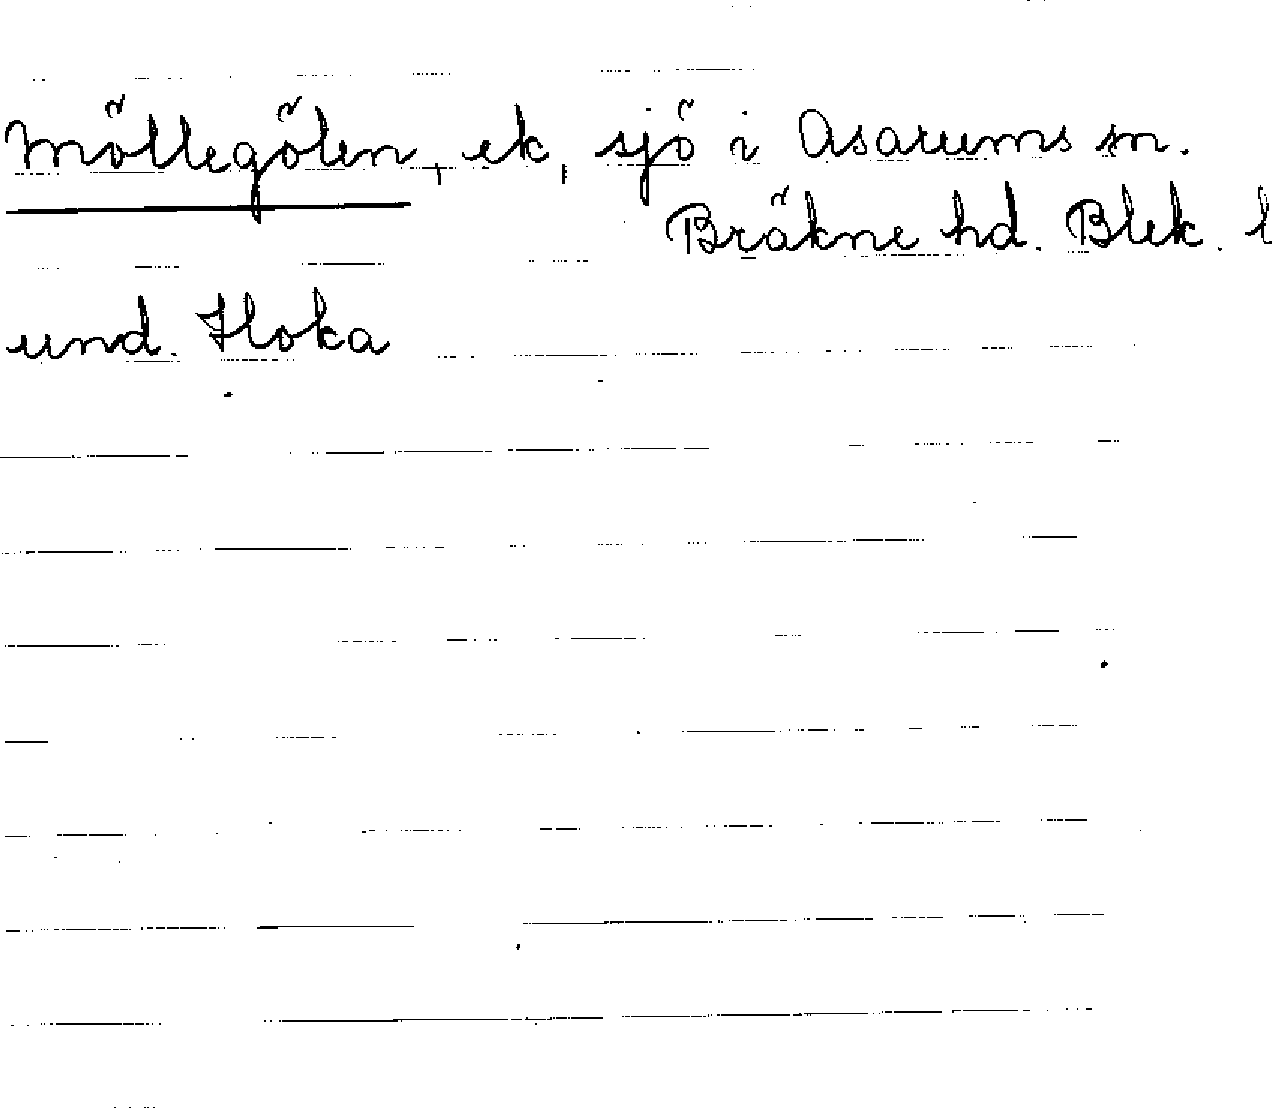 Möllegölen, ek, sjö i Asarums sn.
Bräkne hd. Blek. l
und. Hoka